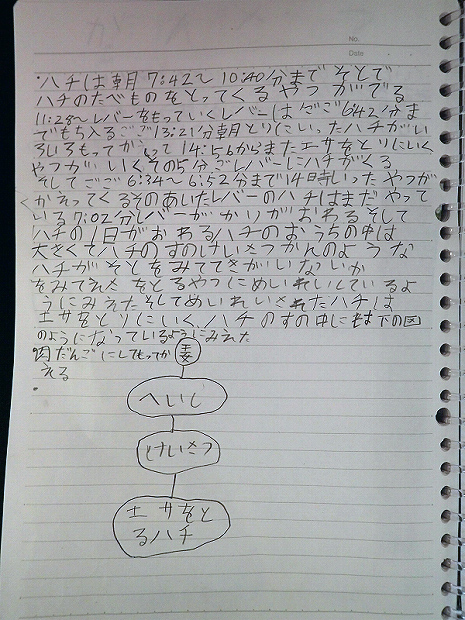 No.
Date
・ハチは朝7:42〜10:40分までそとで
ハチのたべものをとってくるやつがでる
11:28〜レバーをもっていくレバーはごご6:42分ま
でもち入るごご13:21分朝とりにいったハチがい
ろいろもってかえって14:56からまたエサをとりにいく
やつがいくその5分ごレバーにハチがくる
そしてごご6:34〜6:52分まで14時いったやつが
かえってくるそのあいだレバーのハチはまだやって
いる7:02分レバーがかりがおわるそして
ハチの1日がおわるハチのおうちの中は
大きくてハチのすのけいさつかんのような
ハチがそとをみててきがいないか
をみてえさをとるやつにめいれいしているよ
うにみえたそしてめいれいされたハチは
エサをとりにいくハチのすの中には下の図
のようになっているようにみえた
肉だんごにしてもってか
える
へいし
けいさつ
エサをと
るハチ